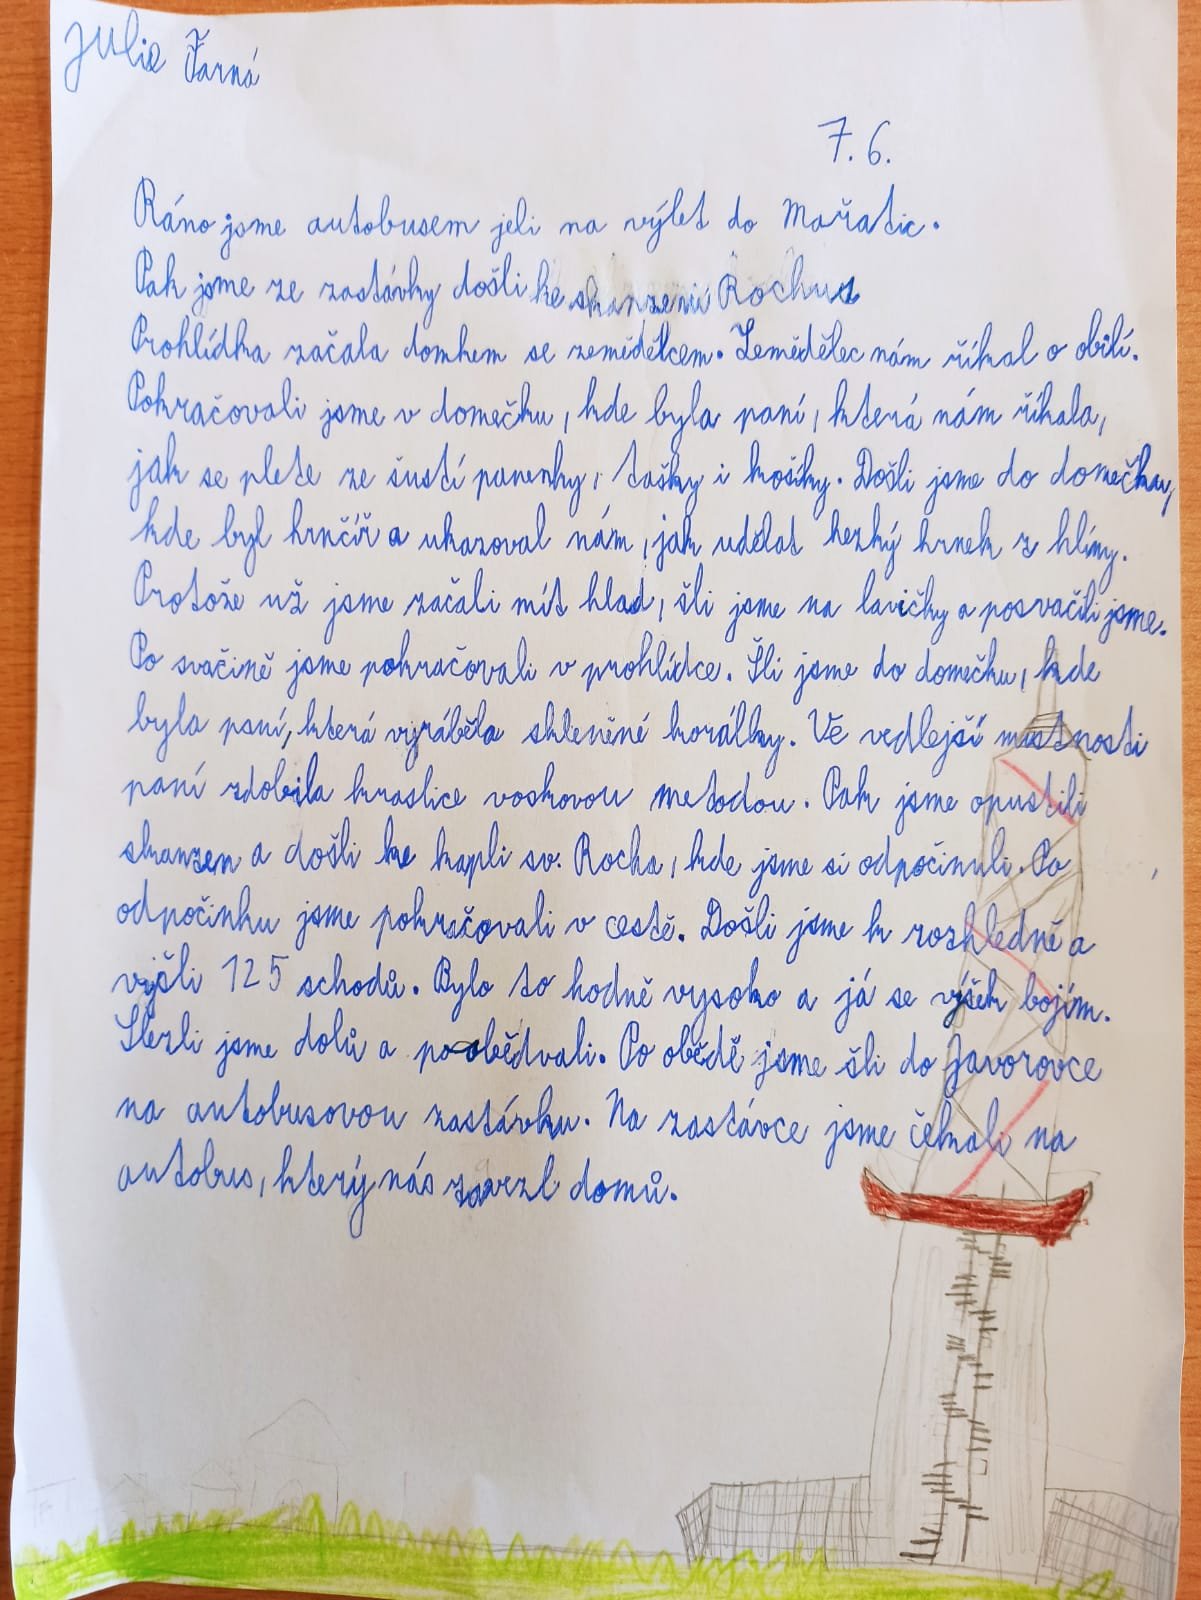 Julie Žárná
7. 6.
Ráno jsme autobusem jeli na výlet do Mařatic.
Pak jsme ze zastávky došli ke skanzenu Rochus
Prohlídka začala domkem se zemědělcem. Zemědělec nám říkal o obilí.
Pokračovali jsme v domečku, kde byla paní, která nám říkala,
jak se plete ze šustí panenky, tašky i košíky. Došli jsme do domečku,
kde byl hrnčíř a ukazoval nám, jak udělat hezký hrnek z hlíny.
Protože už jsme začali mít hlad, šli jsme na lavičky a posvačili jsme.
Po svačině jsme pokračovali v prohlídce. Šli jsme do domečku, kde
byla paní, která vyráběla skleněné korálky. Ve vedlejší místnosti
paní zdobila kraslice voskovou metodou. Pak jsme opustili
skanzen a došli ke kapli sv. Rocha, kde jsme si odpočinuli. Po
odpočinku jsme pokračovali v cestě. Došli jsme k rozhledně a
vyšli 125 schodů. Bylo to hodně vysoko a já se výšek bojím.
Slezli jsme dolů a poobědvali. Po obědě jsme šli do Javorovce
na autobusovou zastávku. Na zastávce jsme čekali na
autobus, který nás zavezl domů.